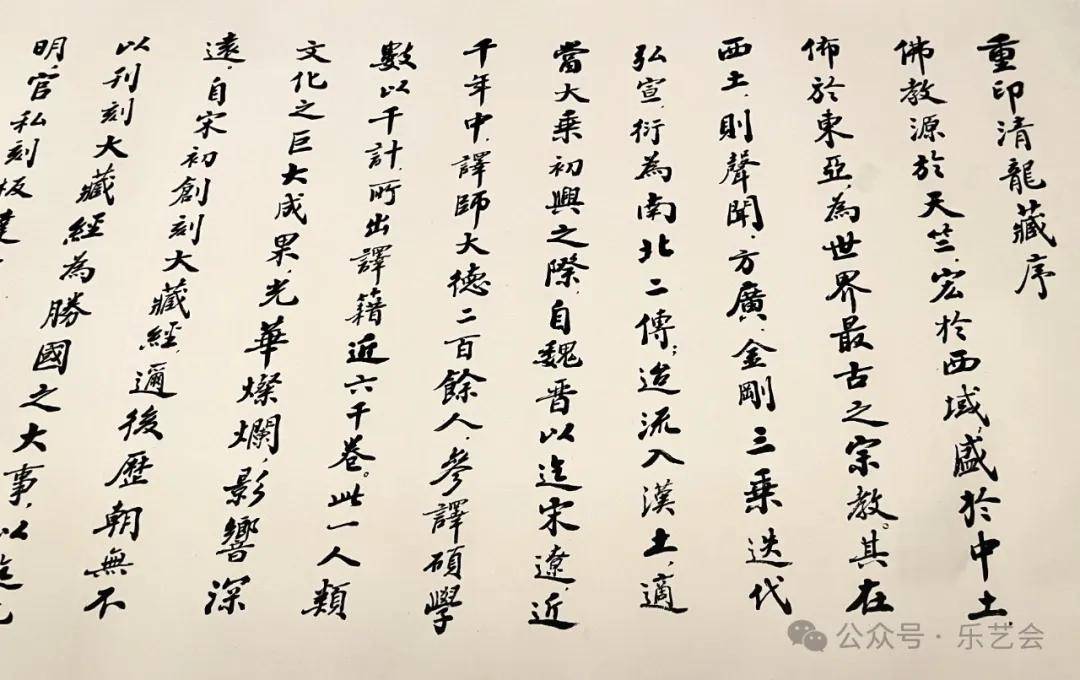 重印清龍藏序
佛教源於天竺,宏於西域,盛於中土,
佈於東亞,為世界最古之宗教。其在
西土,則聲聞、方廣、金剛三乘迭代
弘宣,衍為南北二傳;迨流入漢土,適
當大乘初興之際,自魏晋以迄宋遼,近
千年中,譯師大德二百餘人,參譯碩學
數以千計,所出譯籍近六千卷。此一人類
文化之巨大成果,光華燦爛,影響深
遠,自宋初創刻大藏經,邇後歷朝無不
以刊刻大藏經為勝國之大事,以迄元
明,官私刻板達
公众号·乐艺会